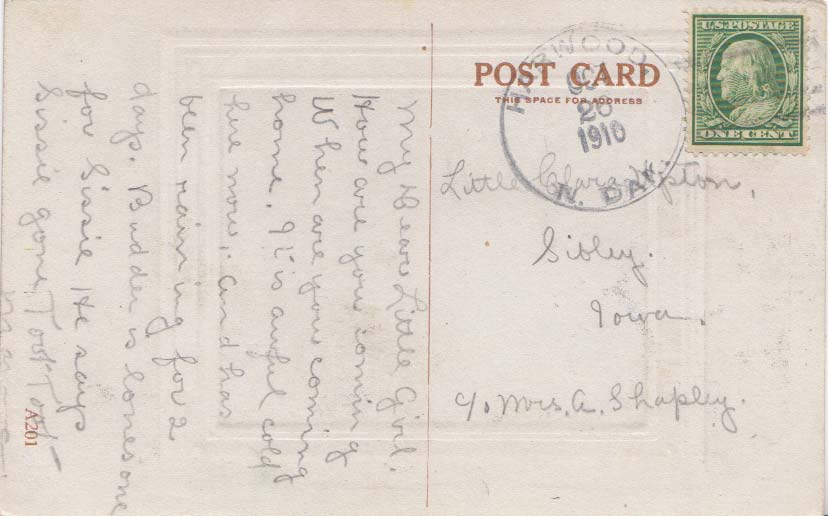 POST CARD
THIS SPACE FOR ADDRESS
U.S. POSTAGE
ONE CENT
HARWOOD,
OCT
26
1910
N. DAK.
Little Clara Lipton,
Sibley.
Iowa.
c/o Mrs. A. Shapley.
My Dear Little Girl.
How are you coming
When are you coming
home. It is awful cold
here now, and has
been raining for 2
days. Budder is lonesome
for Sissie He says
Sissie gone Toot Toot
Mama.
A201